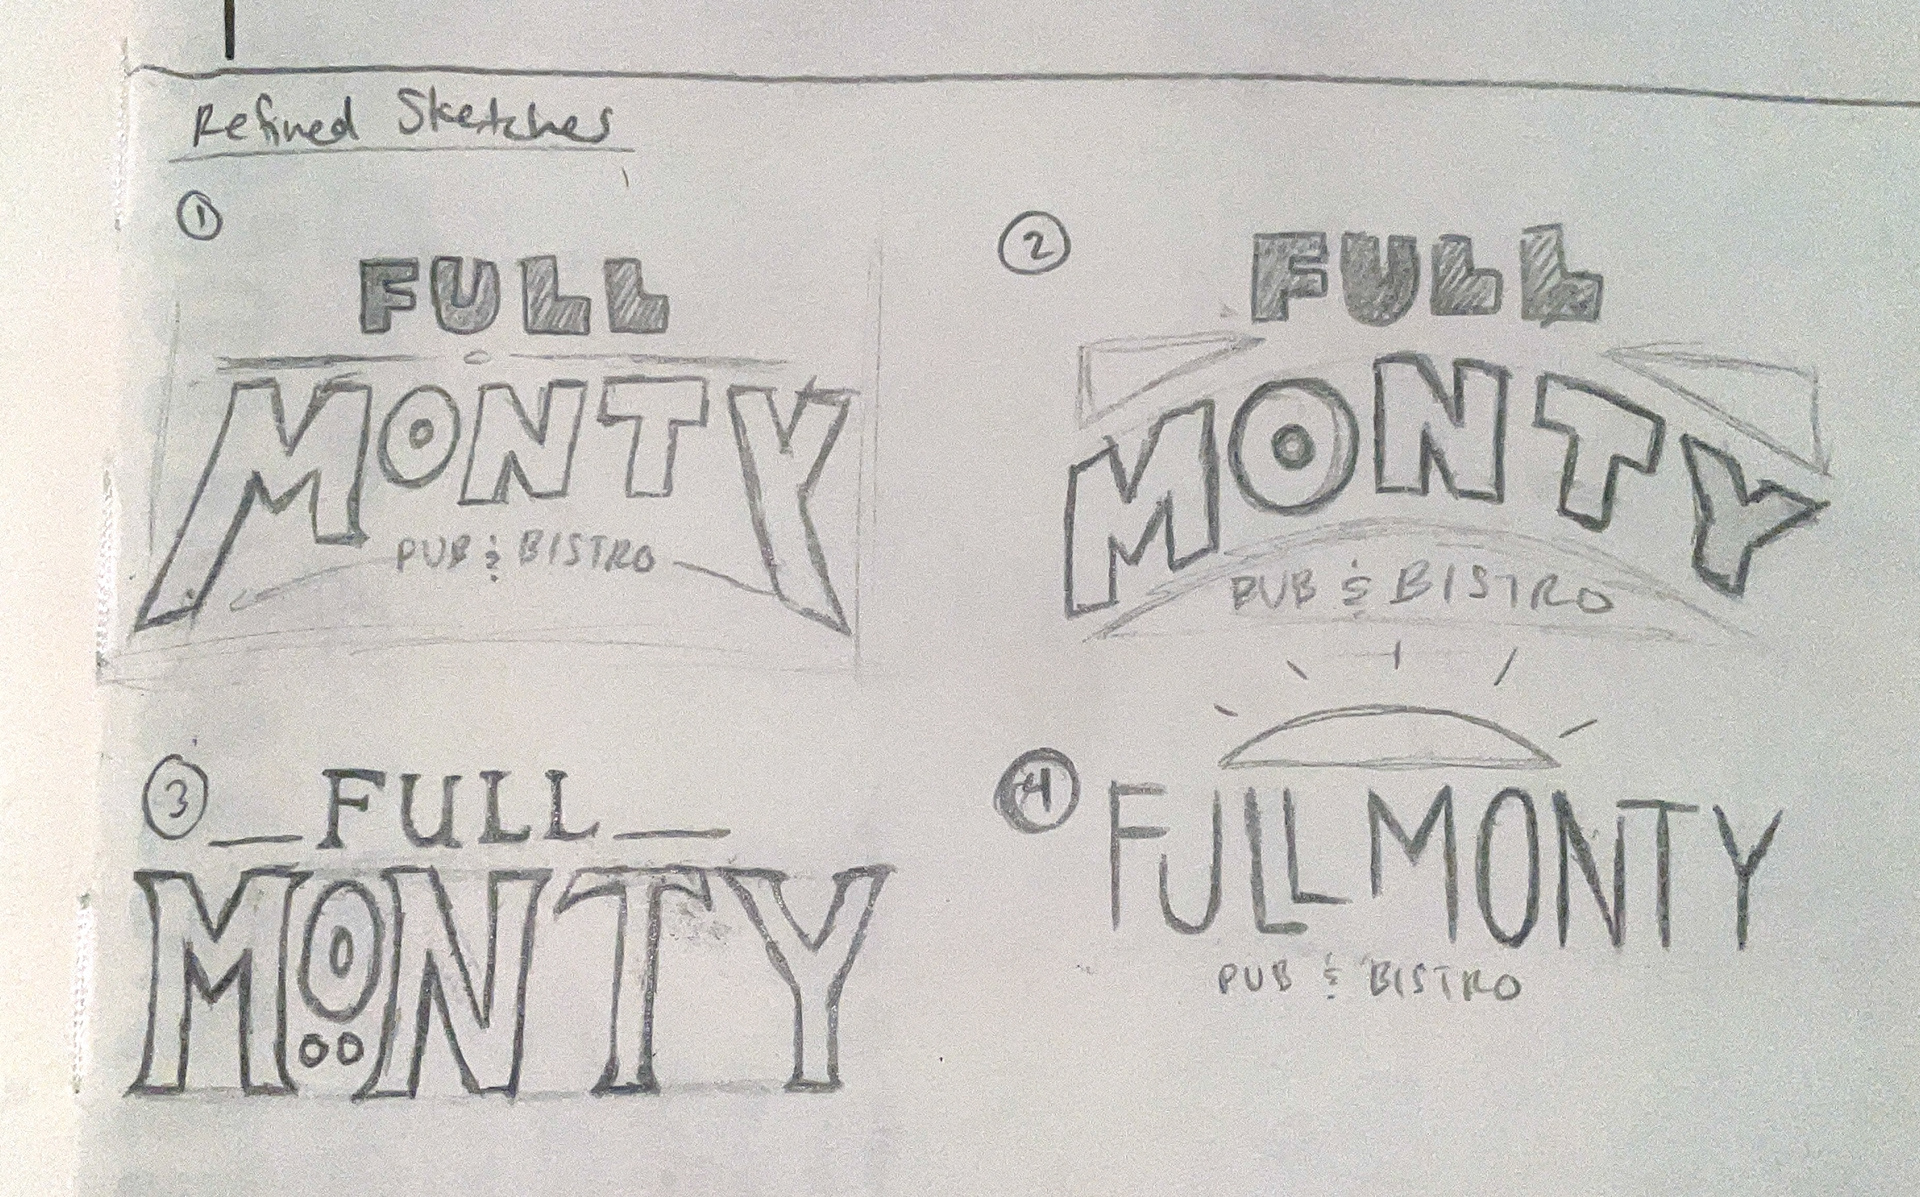 Refined Sketches
1
FULL
MONTY
PUB & BISTRO
2
FULL
MONTY
PUB & BISTRO
3
FULL
MONTY
4
FULL MONTY
PUB & BISTRO